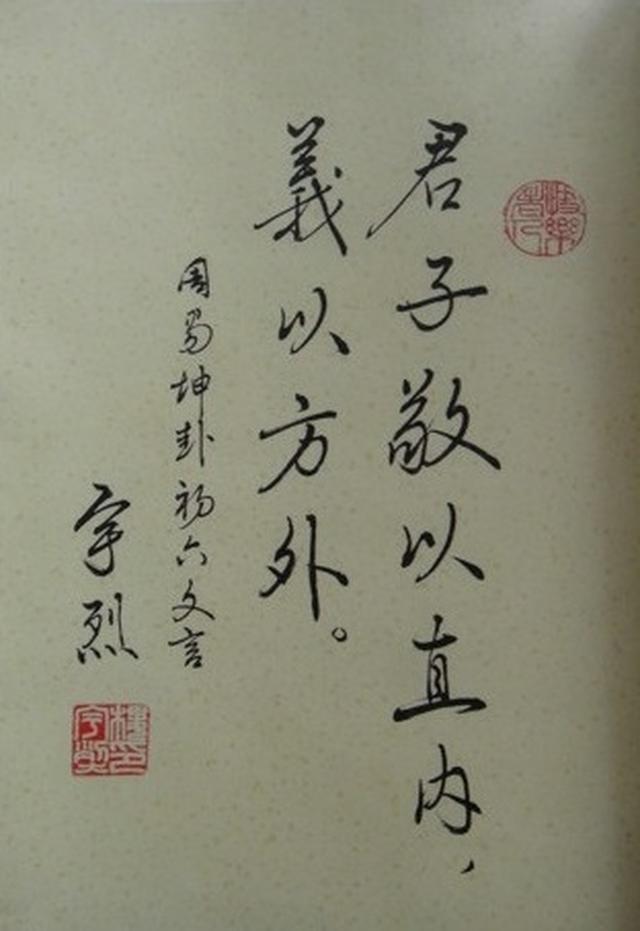 君子敬以直内，
義以方外。
周易坤卦初六文言
宇烈
樓宇烈印